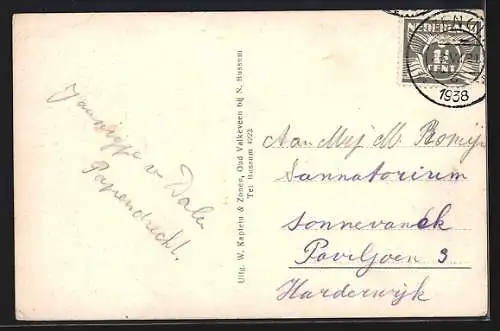 Jannigje v Dalen
Papendrecht.
Uitg. W. Kaptein & Zonen, Oud Valkeveen bij N. Bussum
Tel. Bussum 4223
NEDERLAND
1½
CENT
1938
Aan Mej M. Romijn
Sannatorium
Sonnevanck
Paviljoen 3
Harderwijk